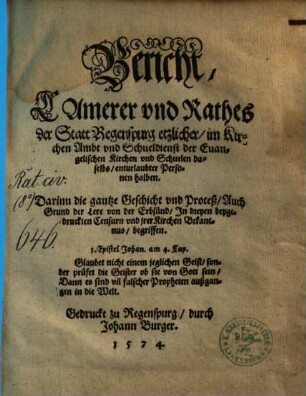 Bericht,
Camerer vnd Rathes
der Statt Regenspurg etzlicher / im Kir-
chen Ambt vnd Schueldienst der Euan-
gelischen Kirchen vnd Schuelen da-
selbs / enturlaubter Perso-
nen halben.
Darinn die gantze Geschicht vnd Proceß / Auch
Grund der Lere von der Erbsünd / In dieyen beyge-
druckten Censurn vnd jrer Kirchen Bekant-
nus / begriffen.
1. Epistel Johan. am 4. Cap.
Glaubet nicht einem jeglichen Geist / son-
der prüfet die Geister ob sie von Gott sein /
Dann es sind vil falscher Propheten außgan-
gen in die Welt.
Gedruckt zu Regenspurg / durch
Johann Burger.
1 5 7 4.
Rat civ.
(8°)
646.